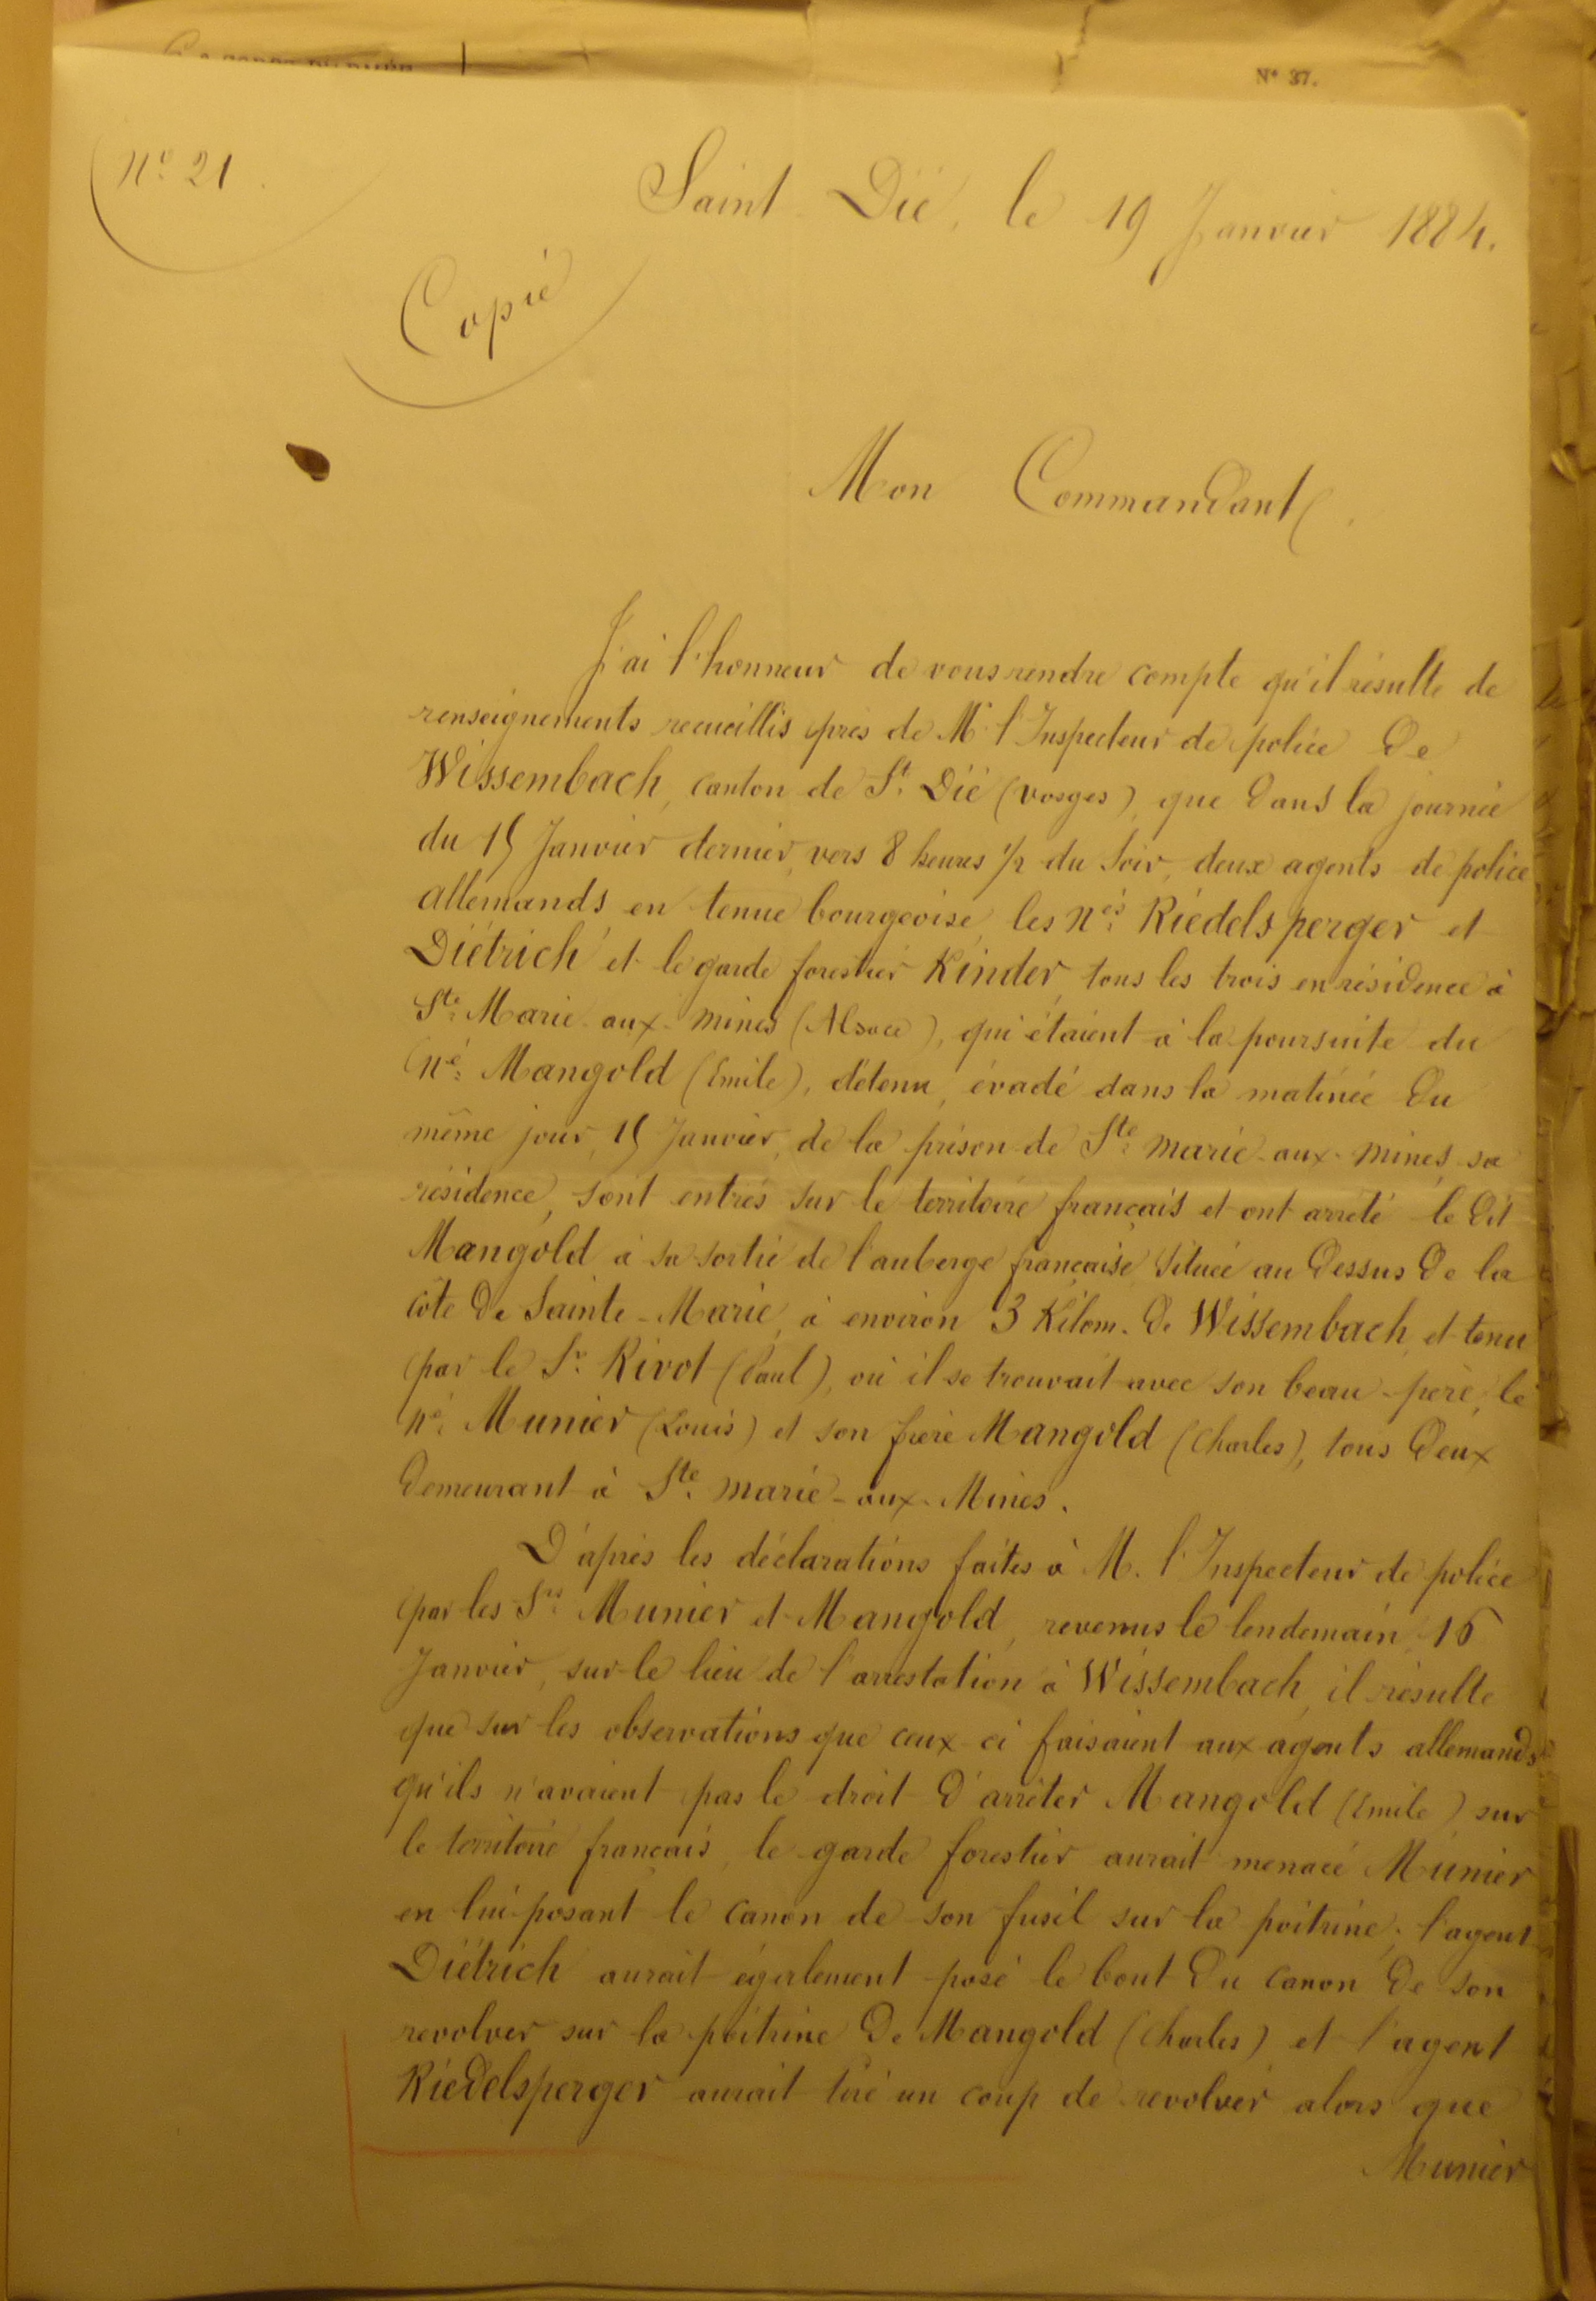 N° 37.
N° 21.
Saint Dié, le 19 Janvier 1884.
Copié
Mon Commandant,
J'ai l'honneur de vous rendre compte qu'il résulte de
renseignements recueillis près de Mr l'Inspecteur de police de
Wissembach, canton de St. Dié (Vosges), que dans la journée
du 15 Janvier dernier, vers 8 heures 1/2 du soir, deux agents de police
allemands en tenue bourgeoise, les nés Riedelsperger et
Diétrich et le garde forestier Kinder, tous les trois en résidence à
Ste Marie-aux-Mines (Alsace), qui étaient à la poursuite du
né Mangold (Emile), détenu, évadé dans la matinée du
même jour, 15 Janvier, de la prison de Ste Marie-aux-Mines, sa
résidence, sont entrés sur le territoire français et ont arrêté le dit
Mangold à sa sortie de l'auberge française située au dessus de la
côte de Sainte-Marie, à environ 3 Kilom. de Wissembach, et tenu
par le Sr. Rivot (Paul), où il se trouvait avec son beau-père, le
né Munier (Louis) et son frère Mangold (Charles), tous deux
demeurant à Ste Marie-aux-Mines.
D'après les déclarations faites à M. l'Inspecteur de police
par les Srs Munier et Mangold, revenus le lendemain, 16
Janvier, sur le lieu de l'arrestation à Wissembach, il résulte
que sur les observations que ceux-ci faisaient aux agents allemands
qu'ils n'avaient pas le droit d'arrêter Mangold (Emile) sur
le territoire français, le garde forestier aurait menacé Munier
en lui posant le canon de son fusil sur la poitrine; l'agent
Diétrich aurait également posé le bout du canon de son
revolver sur la poitrine de Mangold (Charles) et l'agent
Riedelsperger aurait tiré un coup de revolver alors que
Munier